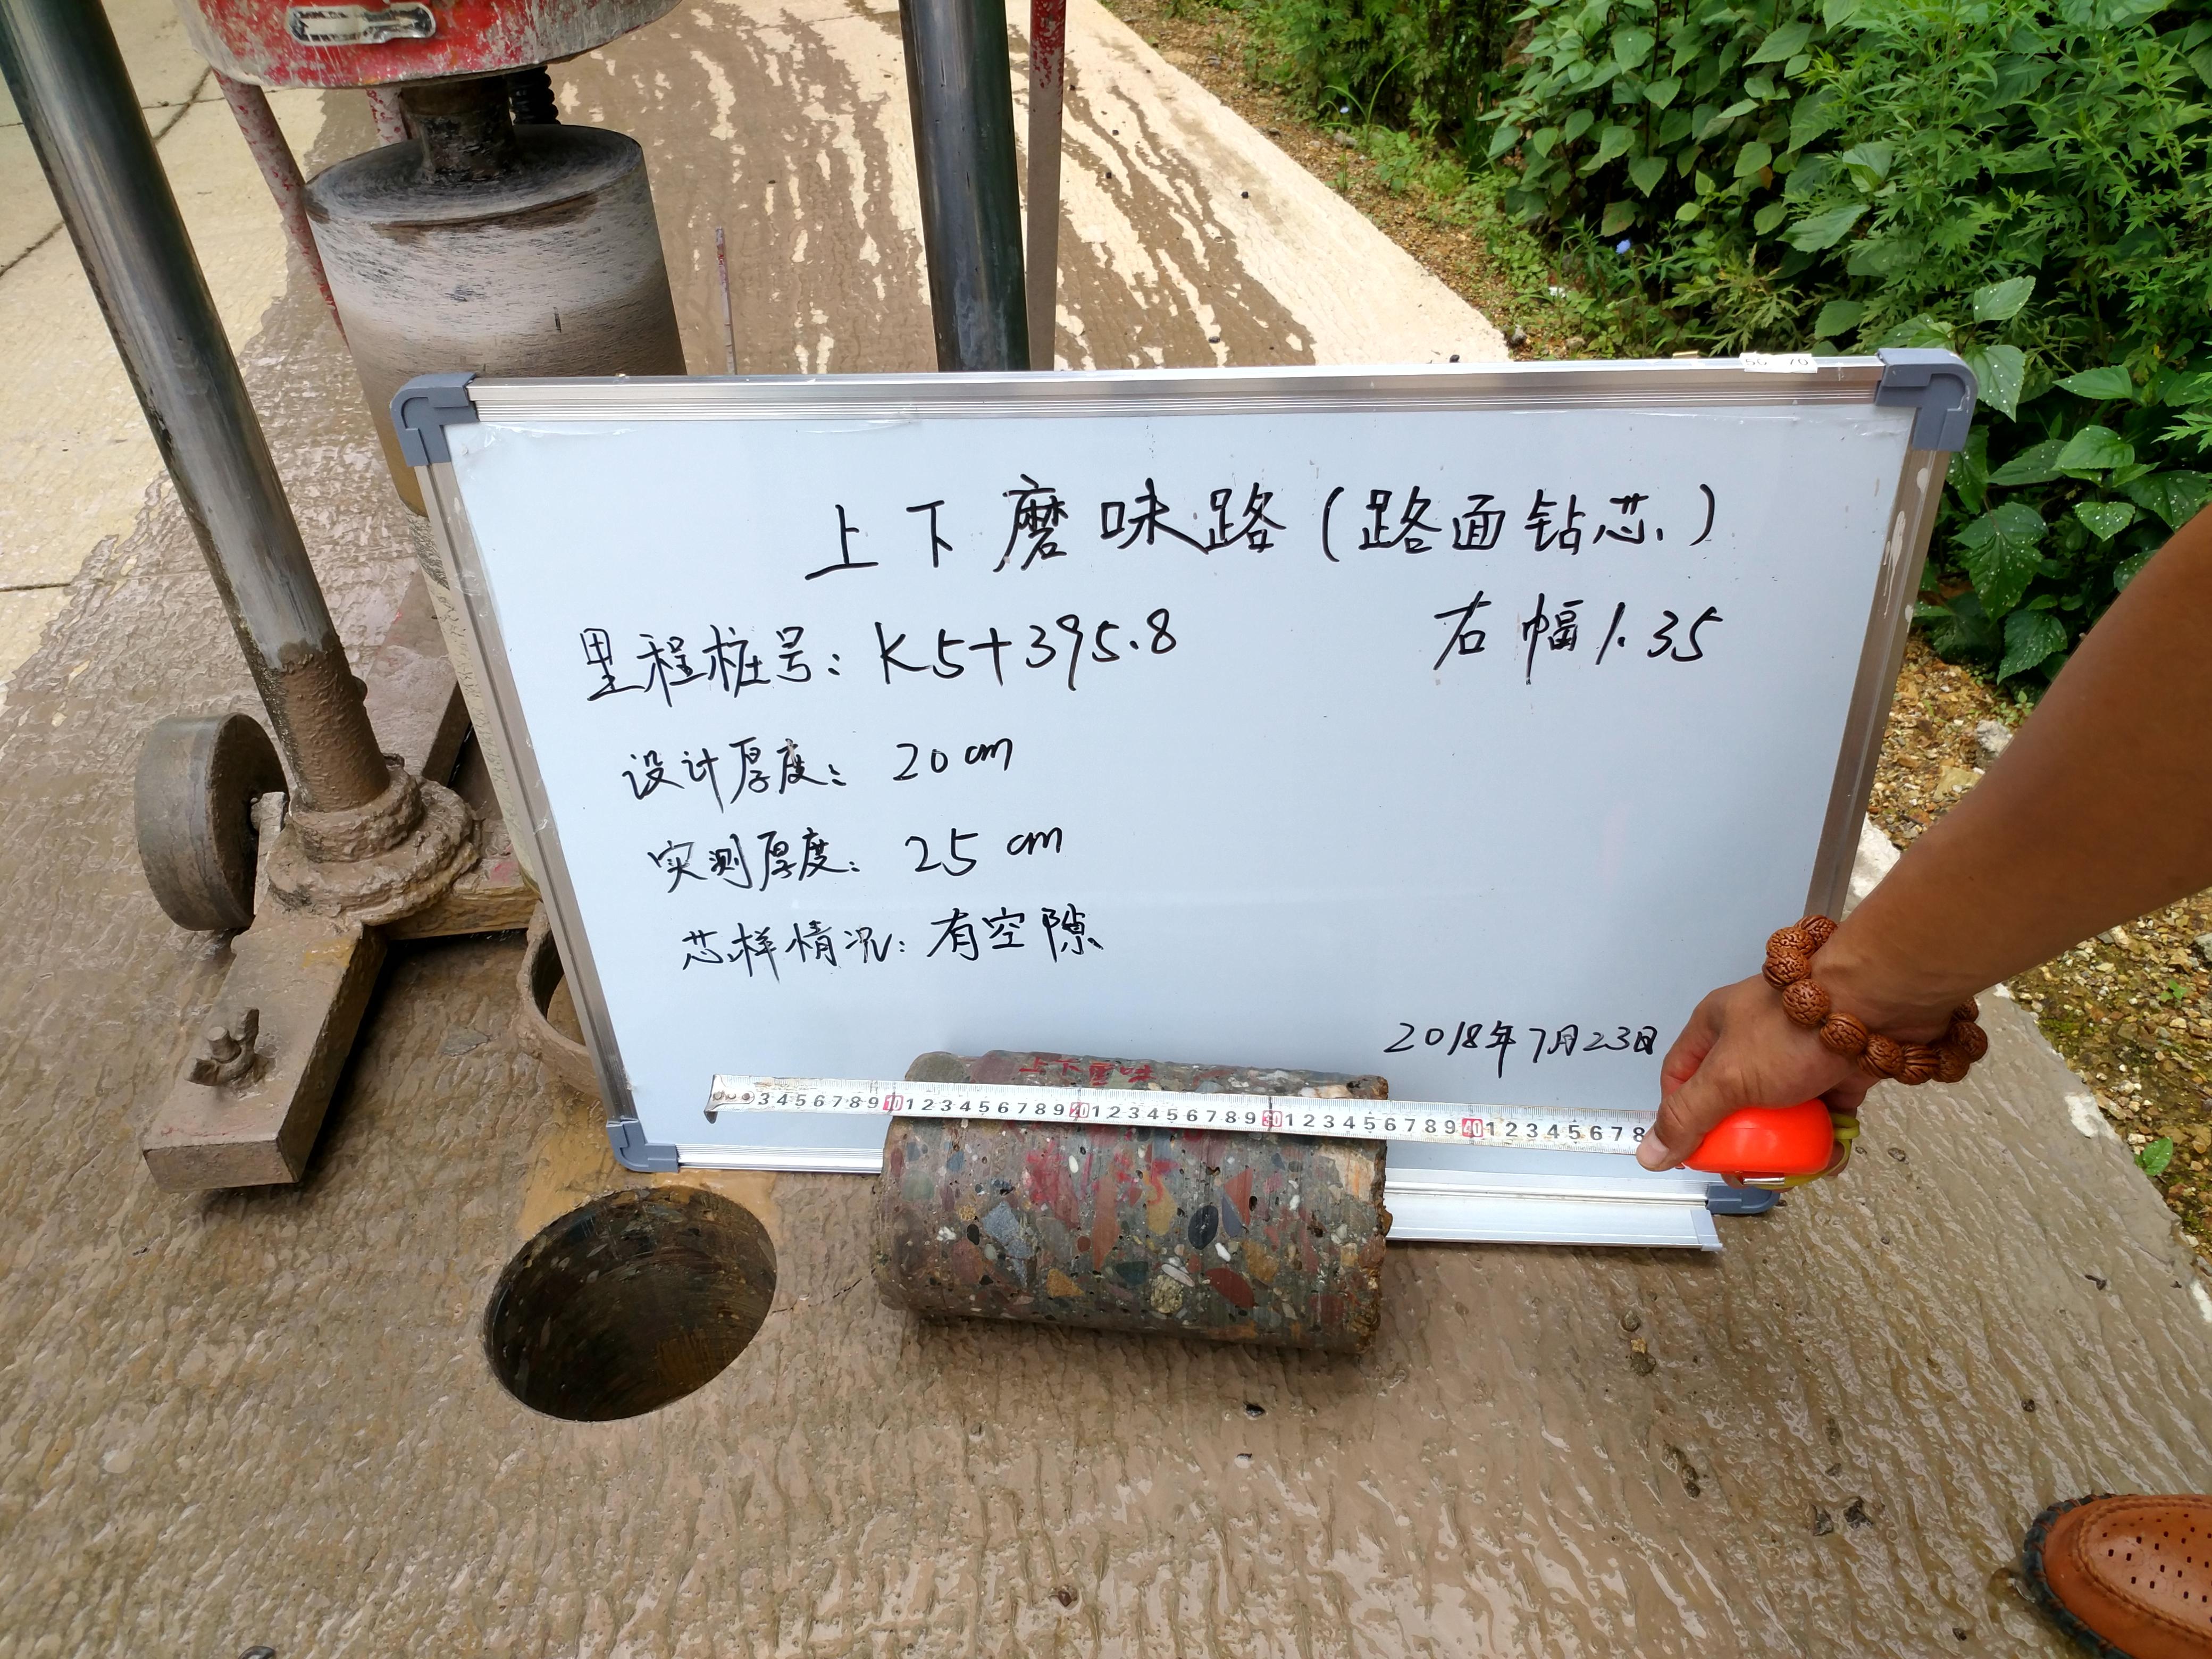 50 70
上下磨味路(路面钻芯)
里程桩号: K5+395.8 右幅1.35
设计厚度: 20cm
实测厚度: 25cm
芯样情况: 有空隙
2018年7月23日
3 4 5 6 7 8 9 10 1 2 3 4 5 6 7 8 9 20 1 2 3 4 5 6 7 8 9 30 1 2 3 4 5 6 7 8 9 40 1 2 3 4 5 6 7 8